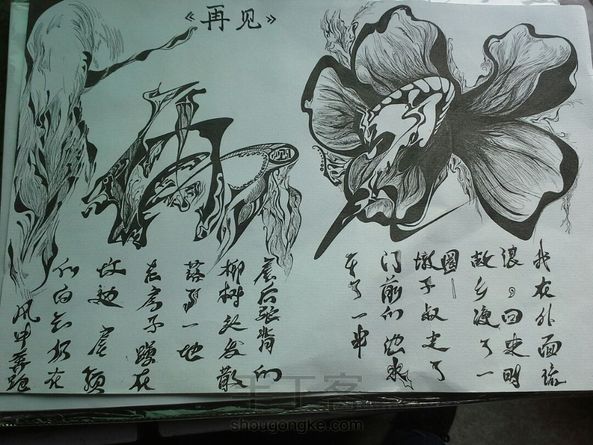 《再见》
我在外面流
浪，回来时
故乡瘦了一
圈—
墩子叔走了
门前的池水
干了一半
屋后驼背的
柳树头发散
落了一地
老房子蹲在
坟边 屋顶
的白云仍在
风中奔跑
手工客
shougongke.com